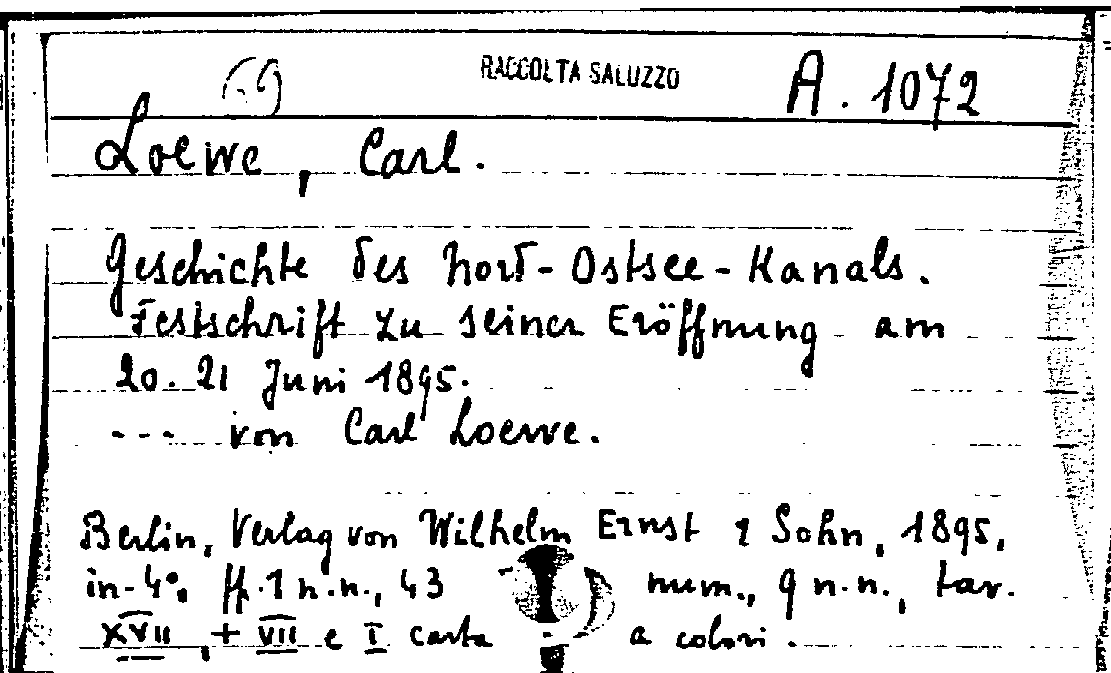 RACCOLTA SALUZZO A. 1072
Loewe, Carl.
Geschichte des Nord-Ostsee-Kanals.
Festschrift zu seiner Eröffnung am
20. 21 Juni 1895.
--- von Carl Loewe.
Berlin, Verlag von Wilhelm Ernst & Sohn, 1895,
in-4°, ff. 1 n.n., 43 num., 9 n.n., tav.
XVII, + VII e I carta a colori.